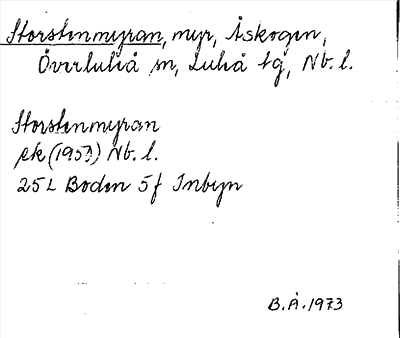 Storstenmyran, myr, Åskogen,
Överluleå sn, Luleå tg, Nb. l.
Storstenmyran
ek (1953) Nb. l.
25L Boden 5f Inbyn
B.Å. 1973